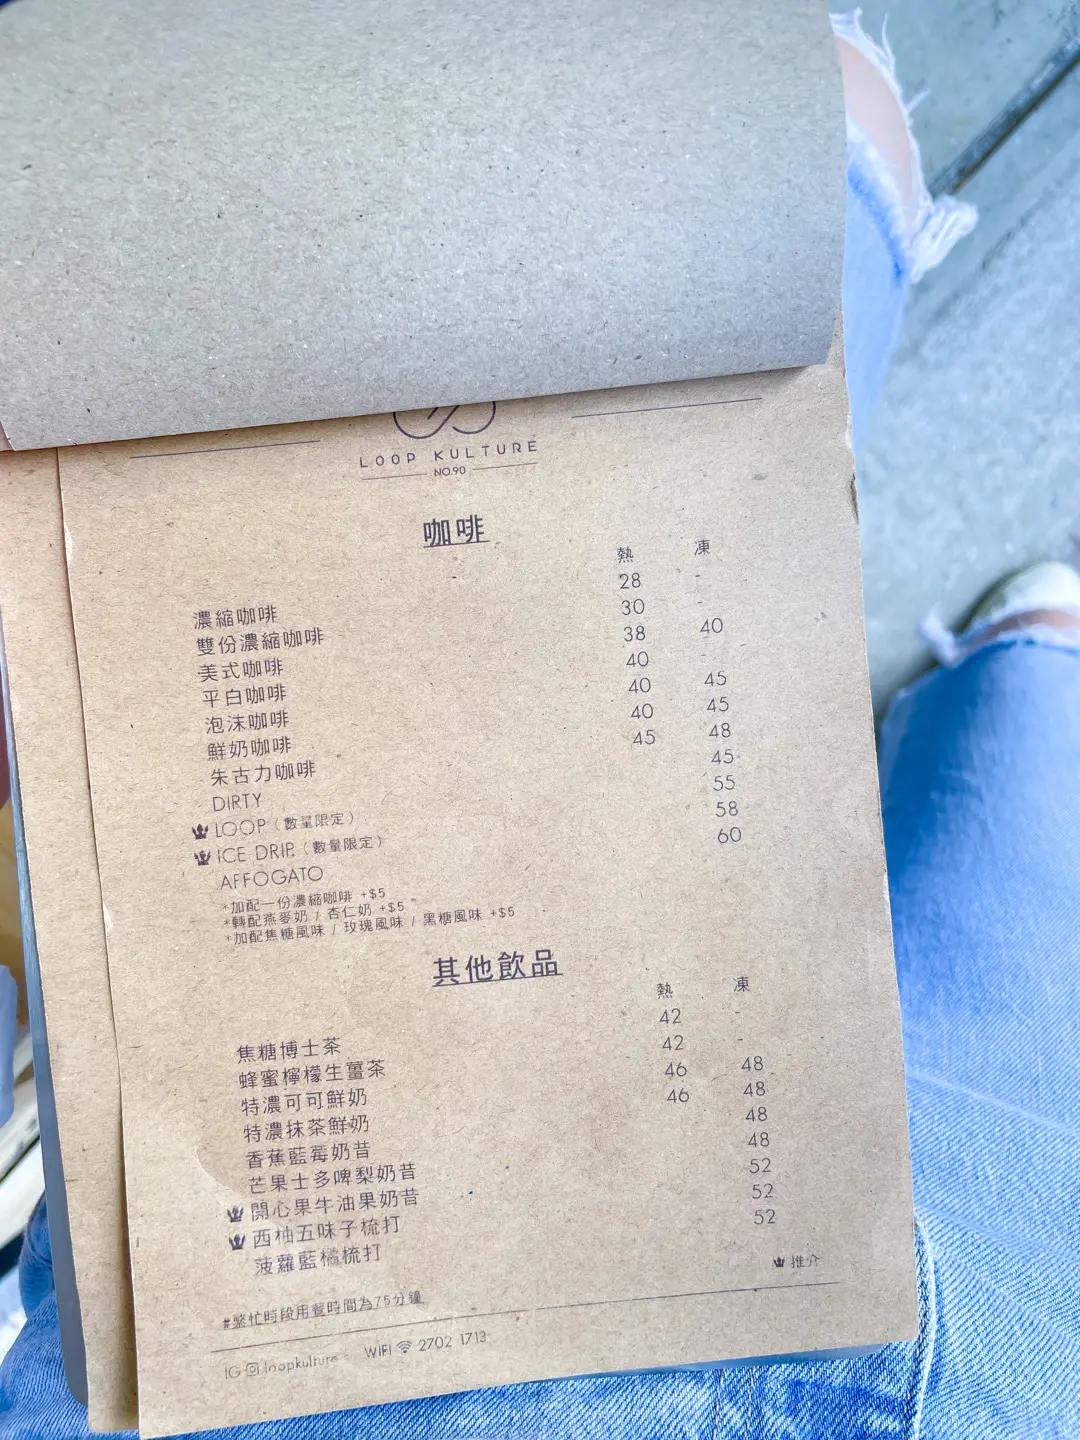 LOOP KULTURE
NO.90
咖啡
熱 凍
濃縮咖啡 28 -
雙份濃縮咖啡 30 -
美式咖啡 38 40
平白咖啡 40 -
泡沫咖啡 40 45
鮮奶咖啡 40 45
朱古力咖啡 45 48
DIRTY 45
LOOP（數量限定） 55
ICE DRIP（數量限定） 58
AFFOGATO 60
*加配一份濃縮咖啡 +$5
*轉配燕麥奶 / 杏仁奶 +$5
*加配焦糖風味 / 玫瑰風味 / 黑糖風味 +$5
其他飲品
熱 凍
焦糖博士茶 42 -
蜂蜜檸檬生薑茶 42 -
特濃可可鮮奶 46 48
特濃抹茶鮮奶 46 48
香蕉藍莓奶昔 48
芒果士多啤梨奶昔 48
開心果牛油果奶昔 52
西柚五味子梳打 52
菠蘿藍橘梳打 52
推介
#繁忙時段用餐時間為75分鐘
IG loopkulture WIFI 2702 1713